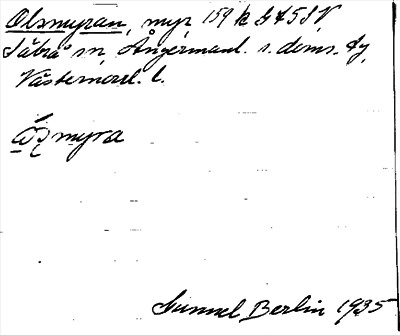 Olsmyran, myr 159 k G 45 SV
Säbrå sn, Ångermanl. s. doms. dg,
Västernorrl. l.
myra
Gunnel Berlin 1935